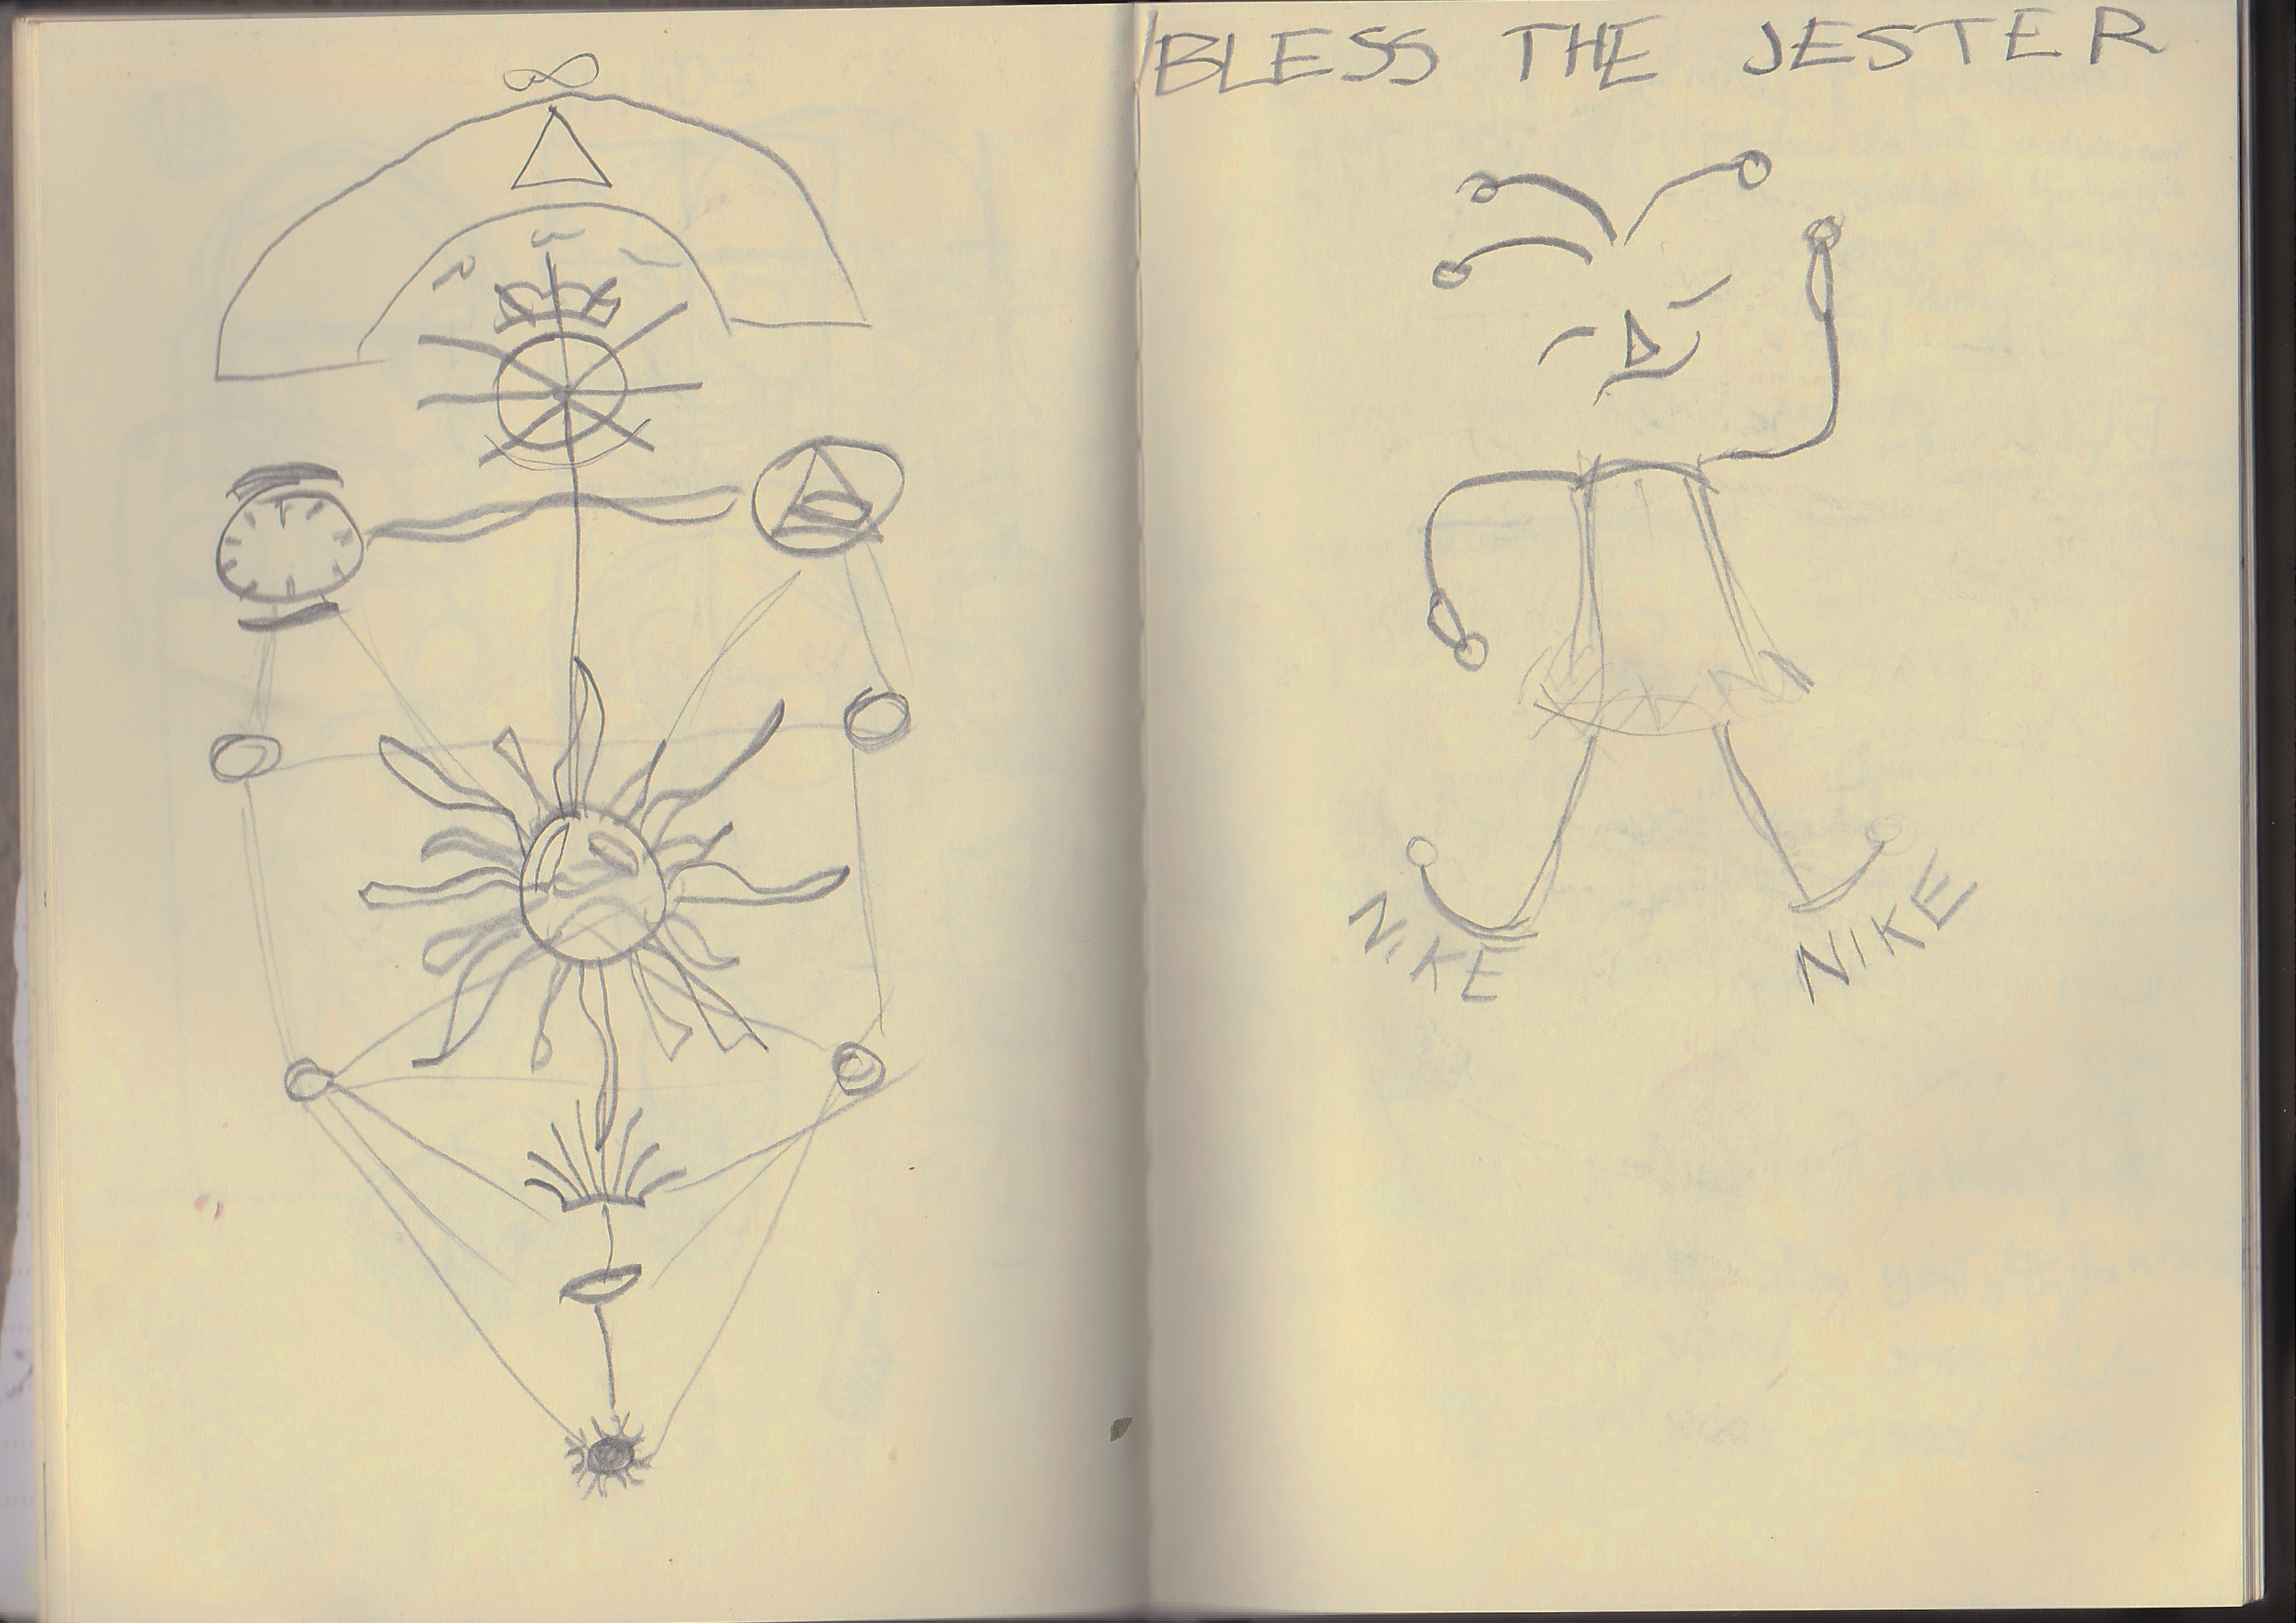 BLESS THE JESTER
NIKE
NIKE